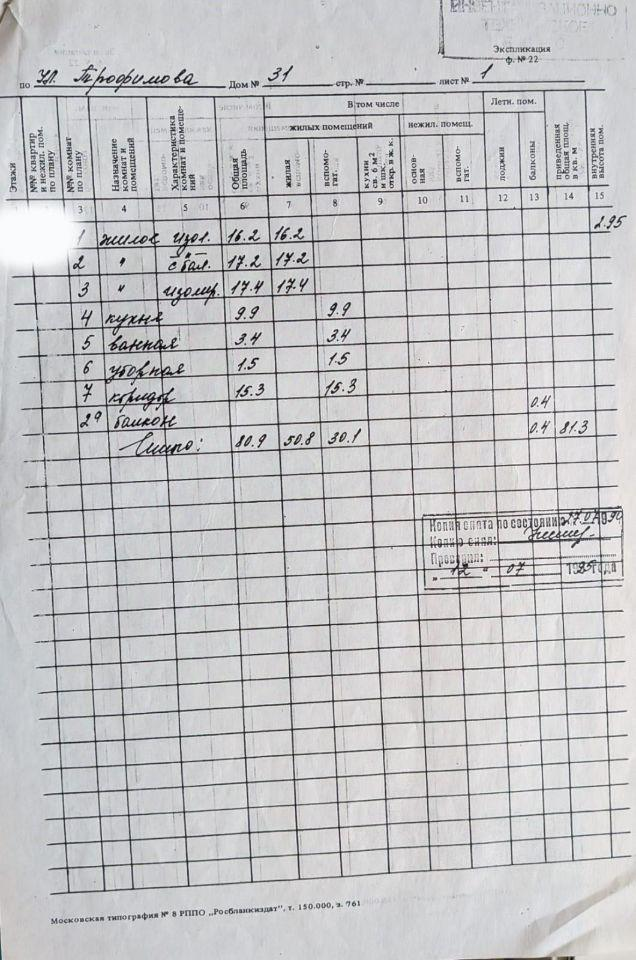 Экспликация
ф. № 22
по ул. Трофимова Дом № 31 стр. № лист № 1
Этажи
№№ квартир и нежил. пом. по плану
№№ комнат по плану
Назначение комнат и помещений
Характеристика комнат и помещений
Общая площадь
В том числе
жилых помещений
жилая
вспомогат.
кухни св. 6 м2 и шк., откр. в ж. к.
нежил. помещ.
основная
вспомогат.
Летн. пом.
лоджии
балконы
приведенная общая площ. в кв. м
внутренняя высота пом.
3 4 5 6 7 8 9 10 11 12 13 14 15
1 жилое изол. 16.2 16.2 2.95
2 " с бал. 17.2 17.2
3 " изолир. 17.4 17.4
4 кухня 9.9 9.9
5 ванная 3.4 3.4
6 уборная 1.5 1.5
7 коридор 15.3 15.3
2а балкон 0.4
Итого: 80.9 50.8 30.1 0.4 81.3
Копия снята по состоянию
Копию снял:
Проверил:
„ 12 “ 07 года
Московская типография № 8 РППО „Росбланкиздат“, т. 150.000, з. 761